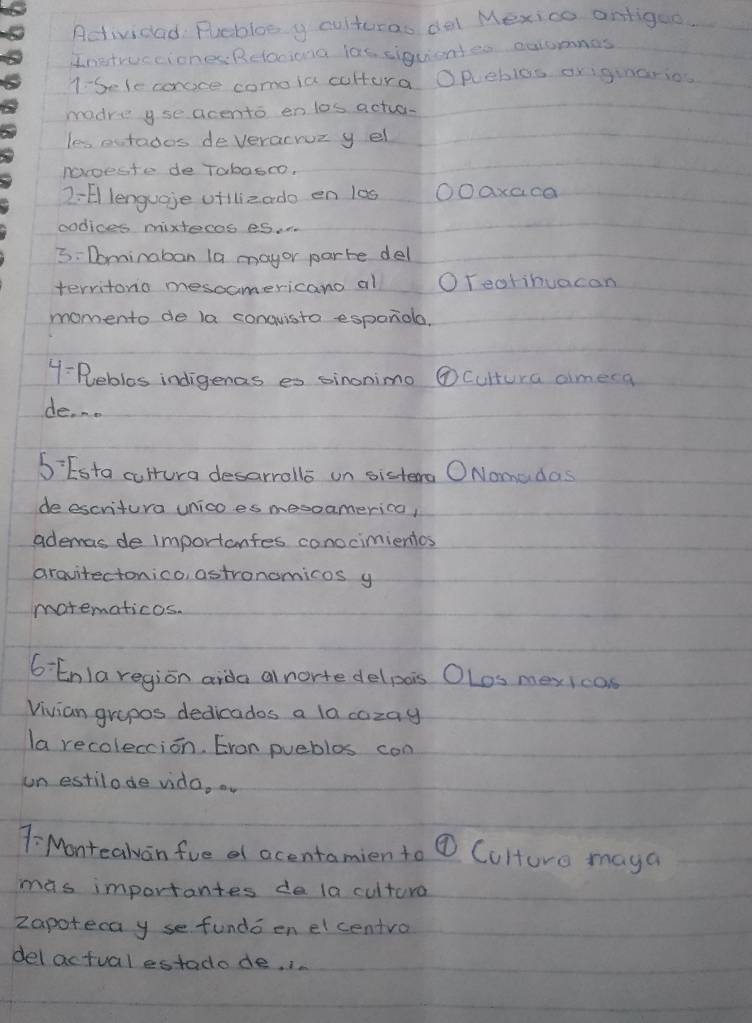 Actividad: Pueblos y culturas del Mexico antiguo.
Instrucciones: Relaciona las siguientes columnas
1-Se le conoce como la cultura O Pueblos originarios
madre y se acentó en los actua-
les estados de Veracruz y el
noroeste de Tabasco.
2-El lenguaje utilizado en los O Oaxaca
codices mixtecos es...
3-Dominaban la mayor parte del
territorio mesoamericano al O Teotihuacan
momento de la conquista española.
4-Pueblos indigenas es sinonimo ① Cultura olmeca
de....
5-Esta cultura desarrolló un sistema O Nomadas
de escritura unico es mesoamerica,
ademas de importantes conocimientos
arquitectonico, astronomicos y
matematicos.
6-En la región arida al norte del pais O Los mexicas
Vivian grupos dedicados a la caza y
la recolección. Eran pueblos con
un estilo de vida....
7-Montealván fue el acentamiento ① Cultura maya
más importantes de la cultura
zapoteca y se fundó en el centro
del actual estado de...